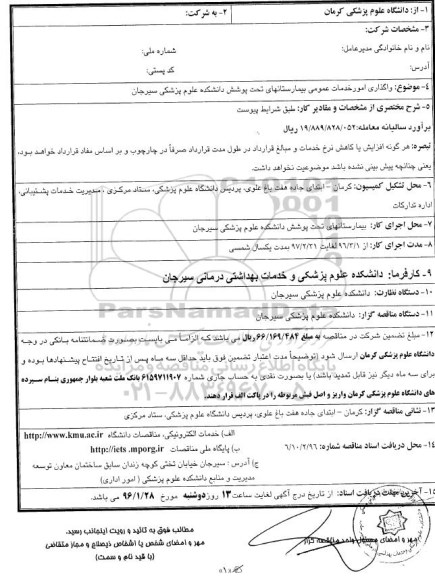 ۱- از: دانشگاه علوم پزشکی کرمان
۲- به شرکت:
۳- مشخصات شرکت:
نام و نام خانوادگی مدیرعامل:
شماره ملی:
آدرس:
کد پستی:
۴- موضوع: واگذاری امور خدمات عمومی بیمارستانهای تحت پوشش دانشکده علوم پزشکی سیرجان
۵- شرح مختصری از مشخصات و مقادیر کار: طبق شرایط پیوست
برآورد سالیانه معامله: ۱۹/۸۸۹/۸۲۸/۰۵۲ ریال
تبصره: هر گونه افزایش یا کاهش نرخ خدمات و مبالغ قرارداد در طول مدت قرارداد صرفاً در چارچوب و بر اساس مفاد قرارداد خواهد بود،
یعنی چنانچه پیش بینی نشده باشد موضوعیت نخواهد داشت.
۶- محل تشکیل کمیسیون: کرمان - ابتدای جاده هفت باغ علوی، پردیس دانشگاه علوم پزشکی، ستاد مرکزی، مدیریت خدمات پشتیبانی،
اداره تدارکات
۷- محل اجرای کار: بیمارستانهای تحت پوشش دانشکده علوم پزشکی سیرجان
۸- مدت اجرای کار: از ۹۶/۳/۱ لغایت ۹۷/۲/۳۱ بمدت یکسال شمسی
۹- کارفرما: دانشکده علوم پزشکی و خدمات بهداشتی درمانی سیرجان
۱۰- دستگاه نظارت: دانشکده علوم پزشکی سیرجان
۱۱- دستگاه مناقصه گزار: دانشکده علوم پزشکی سیرجان
۱۲- مبلغ تضمین شرکت در مناقصه به مبلغ ۶۶/۱۶۹/۴۸۴ ریال می باشد که الزاماً می بایست بصورت ضمانتنامه بانکی در وجه
دانشگاه علوم پزشکی کرمان ارسال شود (توضیحاً مدت اعتبار تضمین فوق باید حداقل سه ماه پس از تاریخ افتتاح پیشنهادها بوده و
برای سه ماه دیگر نیز قابل تمدید باشد) یا بصورت نقدی به حساب جاری شماره ۶۱۵۹۷۱۱۹۰۷ بانک ملت شعبه بلوار جمهوری بنام سپرده
های دانشگاه علوم پزشکی کرمان واریز و اصل فیش مربوطه را در پاکت الف قرار دهند.
۱۳- نشانی مناقصه گزار: کرمان - ابتدای جاده هفت باغ علوی، پردیس دانشگاه علوم پزشکی، ستاد مرکزی
۱۴- محل دریافت اسناد مناقصه شماره: ۶/۱۰۲/۹۶
الف) خدمات الکترونیکی، مناقصات دانشگاه http://www.kmu.ac.ir
ب) پایگاه ملی مناقصات http://iets.mporg.ir
ج) آدرس: سیرجان خیابان تختی کوچه زندان سابق ساختمان معاون توسعه
مدیریت و منابع دانشکده علوم پزشکی (امور اداری)
۱۵- آخرین مهلت دریافت اسناد: از تاریخ درج آگهی لغایت ساعت ۱۳ روز دوشنبه مورخ ۹۶/۱/۲۸ می باشد.
مهر و امضای مسئول واحد مناقصه گزار
مطالب فوق به تائید و رویت اینجانب رسید.
مهر و امضای شخص یا اشخاص ذیصلاح و مجاز متقاضی
(با قید نام و سمت)
ParsNamadData
پایگاه اطلاع رسانی مناقصه و مزایده